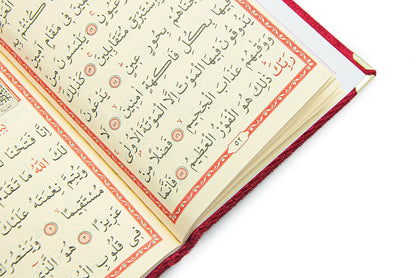 فِى مَقَامٍ اَمِينٍ
يَلْبَسُونَ
وَاِسْتَبْرَقٍ مُتَقَابِلِينَ كَذٰلِكَ
بِحُورٍ عِينٍ يَدْعُونَ
فِيهَا بِكُلِّ فَاكِهَةٍ اٰمِنِينَ لَا
يَذُوقُونَ فِيهَا الْمَوْتَ اِلَّا الْمَوْتَةَ الْاُولٰى
وَوَقٰيهُمْ عَذَابَ الْجَحِيمِ فَضْلًا مِنْ
رَبِّكَ ذٰلِكَ هُوَ الْفَوْزُ الْعَظِيمُ فَاِنَّمَا
٥٢
اِنَّا فَتَحْنَا
لَكَ اللّٰهُ مَا تَقَدَّمَ
وَيُتِمَّ نِعْمَتَهُ عَلَيْكَ
مُسْتَقِيمًا
عَزِيزًا هُوَ
فِى قُلُوبِ